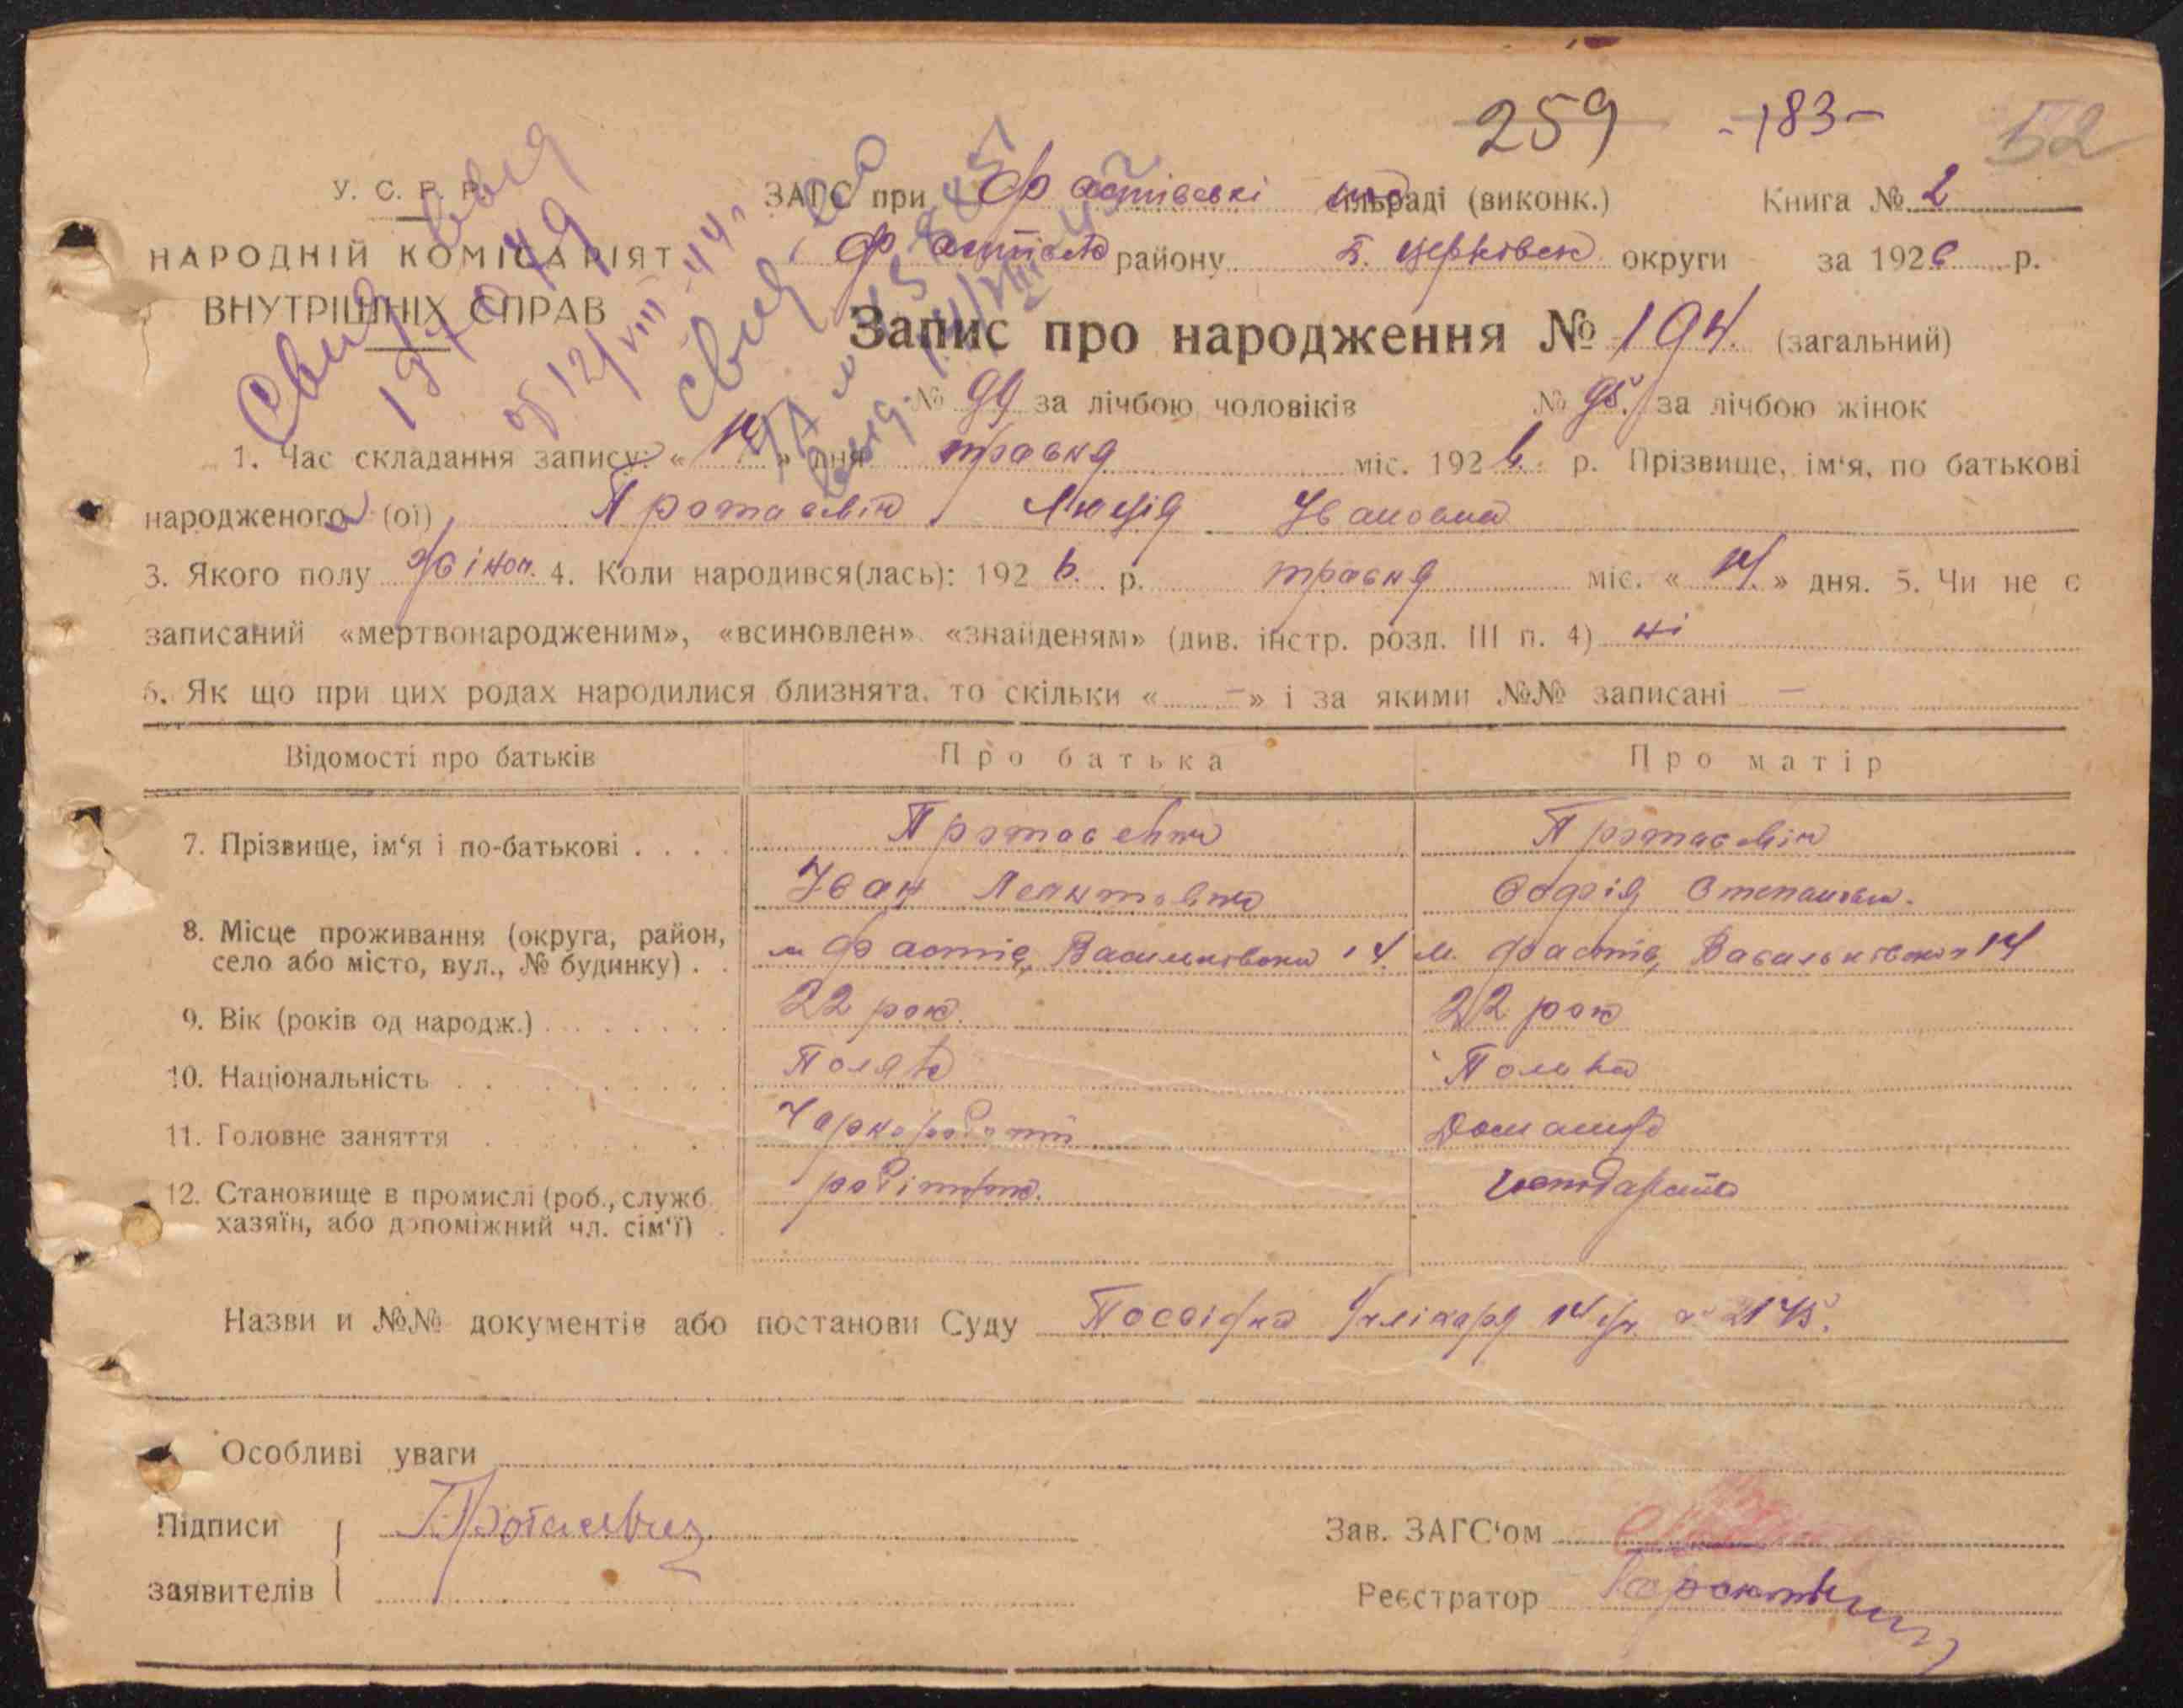 259 -183- 52
У. С. Р. Р.
НАРОДНІЙ КОМІСАРІЯТ
ВНУТРІШНІХ СПРАВ
ЗАГС при Фастівські сільраді (виконк.) Книга № 2
Фастівськ району Б. Церківськ округи за 1926 р.
Запис про народження № 194. (загальний)
№ 99 за лічбою чоловіків № 95. за лічбою жінок
Свид
197079
от 12/VIII-44
свид
1. Час складання запису: « 14 » дня травня міс. 1926. р. Прізвище, ім'я, по батькові
народженого (ої) Протасевіч Люція Івановна
3. Якого полу жіноч. 4. Коли народився(лась): 1926. р. травня міс. « 14. » дня. 5. Чи не є
записаний «мертвонародженим», «всиновлен» «знайденям» (див. інстр. розд. III п. 4) ні
6. Як що при цих родах народилися близнята, то скільки « - » і за якими №№ записані -
Відомості про батьків Про батька Про матір
7. Прізвище, ім'я і по-батькові . . . . Протасевич Протасевіч
Іван Леонтович Софія Степановн.
8. Місце проживання (округа, район,
село або місто, вул., № будинку) . . м Фастів, Васильківська 14. м. Фастів, Васильківська 14
9. Вік (років од народж.) . . . . . . . 22 рок. 22 рок
10. Національність . . . . . . . . . Поляк Полька
11. Головне заняття . . . . . . . Чорноробочий Домашнє
12. Становище в промислі (роб., служб.
хазяїн, або допоміжний чл. сім'ї) . робітник. господарство
Назви и №№ документів або постанови Суду Посвідка лікаря 14 № 2145.
Особливі уваги
Підписи Протасевич Зав. ЗАГС'ом
заявителів Реєстратор